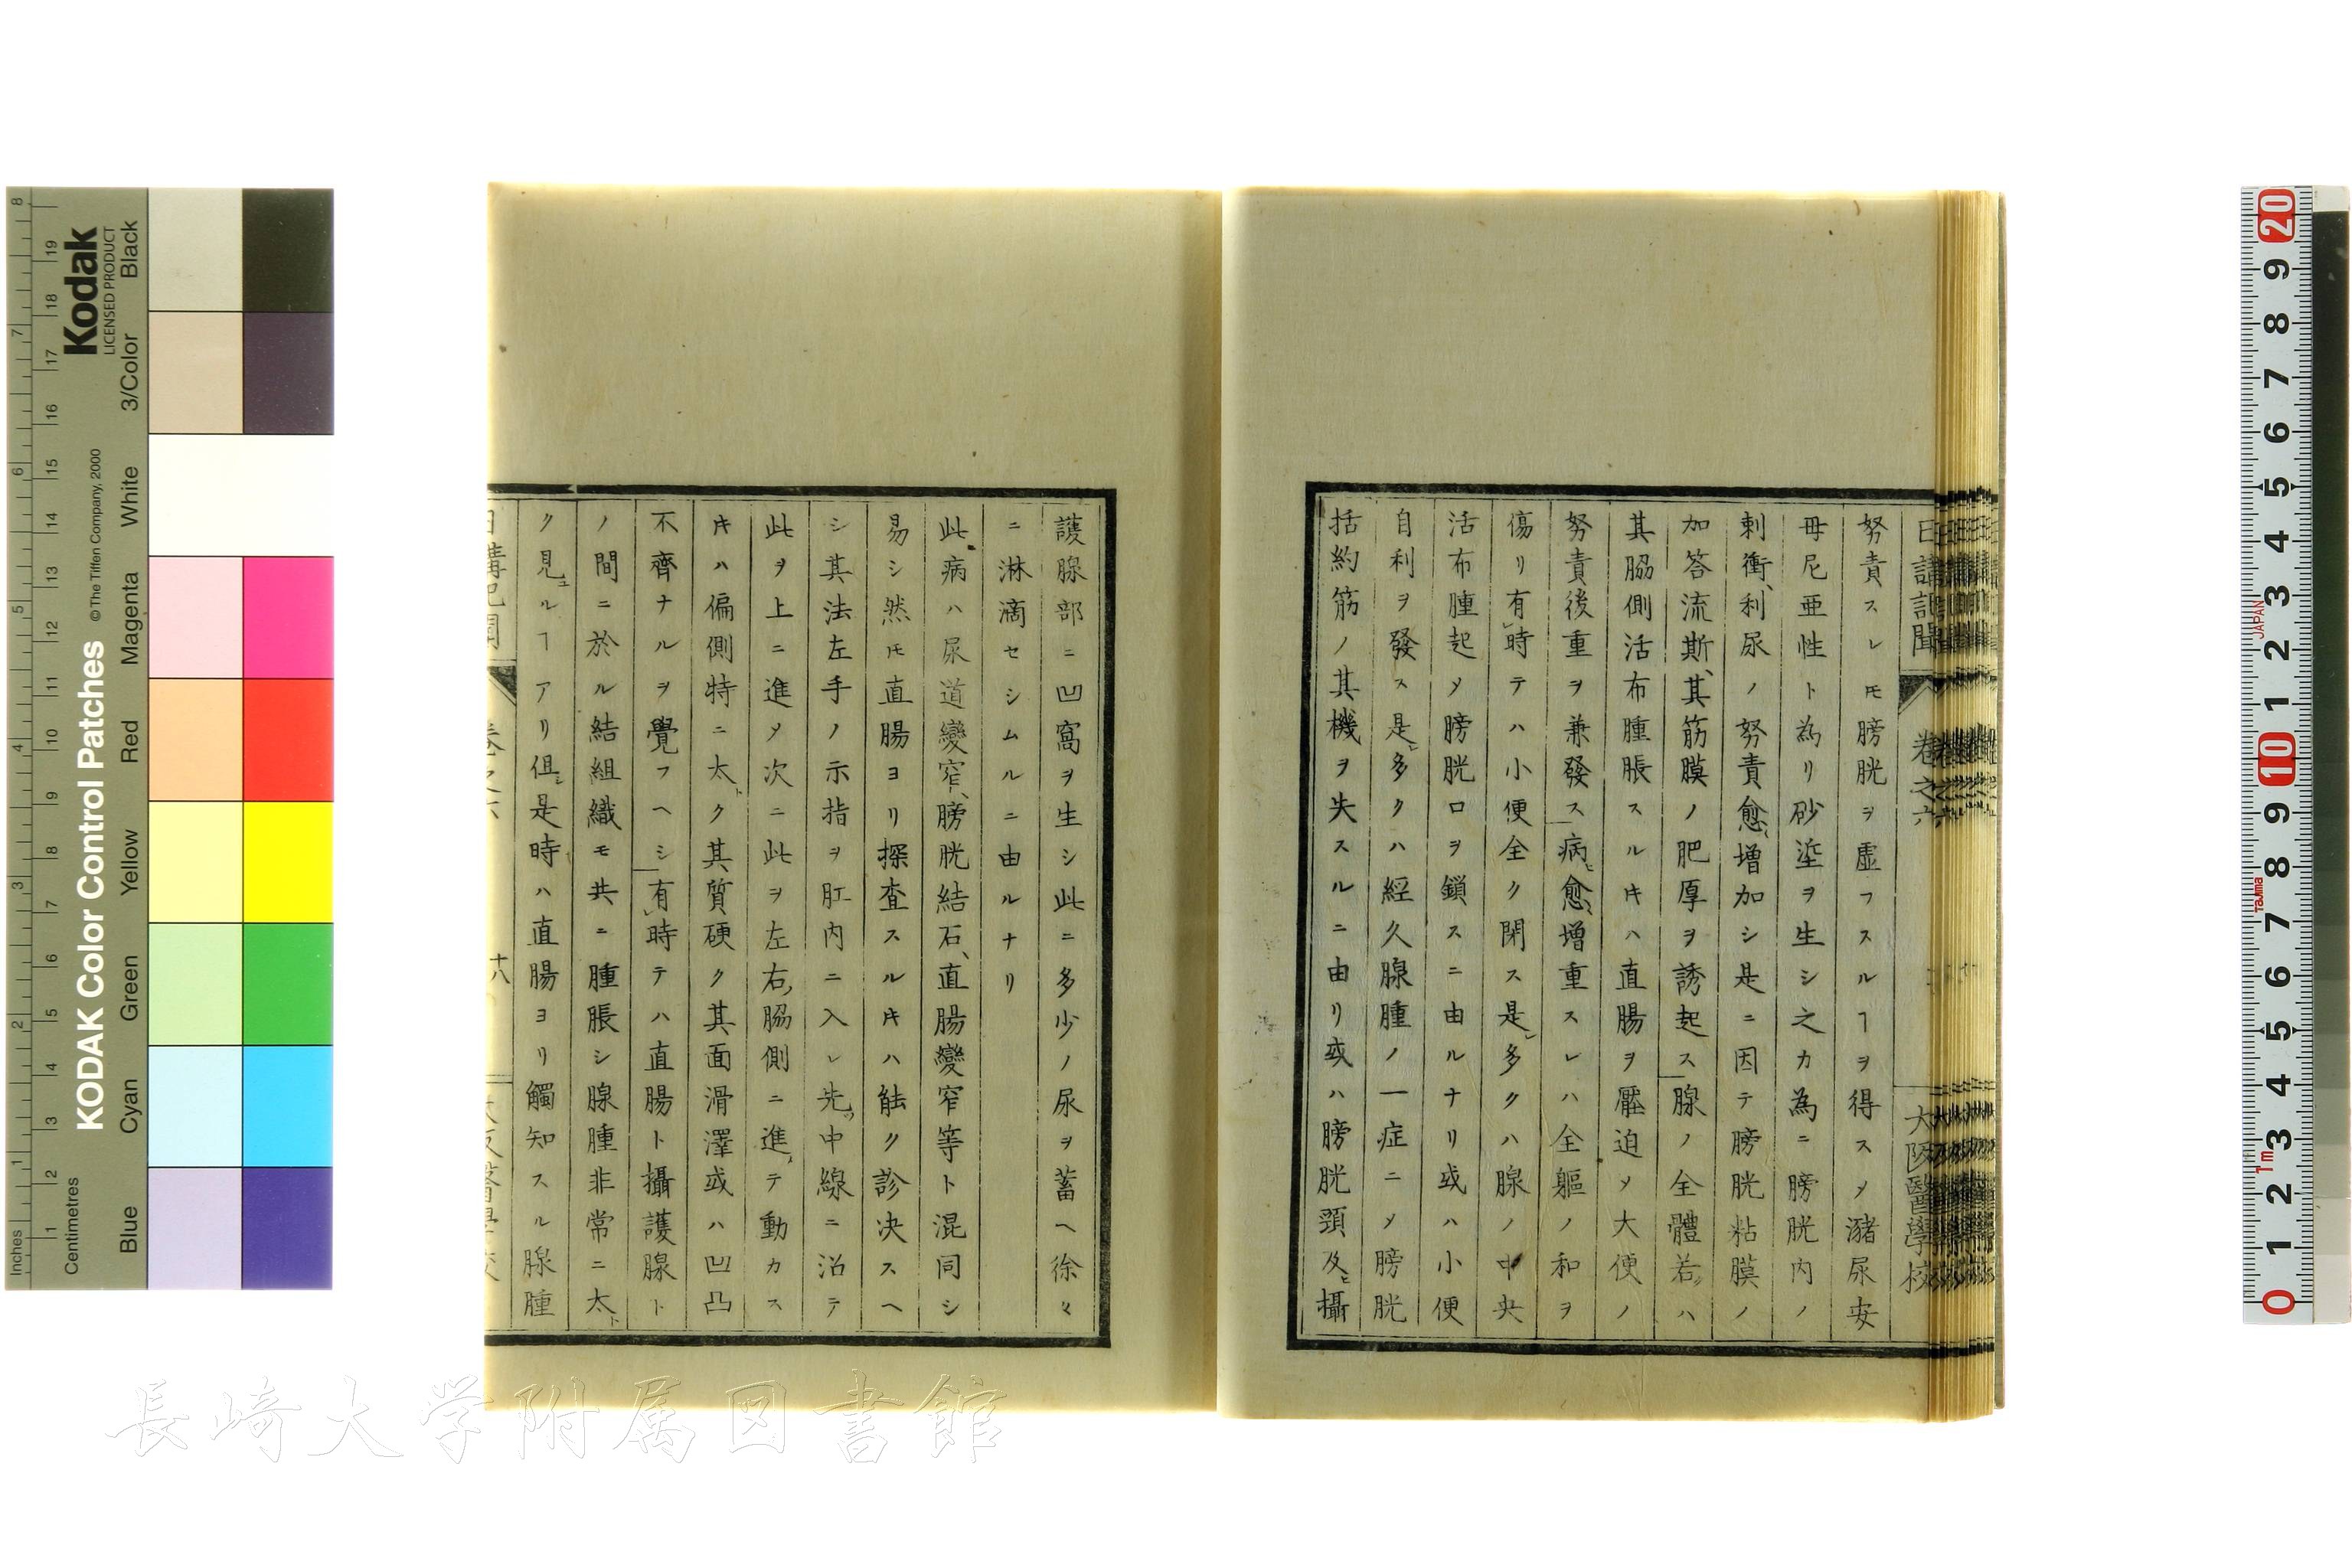 日講記聞
卷之六
大阪醫學校
努責スレ𪜈膀胱ヲ虛フスルヿヲ得スメ瀦尿安
母尼亜性ト為リ砂塗ヲ生シ之カ為ニ膀胱内ノ
刺衝、利尿ノ努責愈增加シ是ニ因テ膀胱粘膜ノ
加答流斯、其筋膜ノ肥厚ヲ誘起ス腺ノ全體若クハ
其脇側活布腫脹スルキハ直腸ヲ壓迫メ大便ノ
努責後重ヲ兼發ス病愈增重スレハ全軀ノ和ヲ
傷リ有時テハ小便全ク閉ス是レ多クハ腺ノ中央
活布腫起メ膀胱口ヲ鎖スニ由ルナリ或ハ小便
自利ヲ發ス是レ多クハ經久腺腫ノ一症ニメ膀胱
括約筋ノ其機ヲ失スルニ由リ或ハ膀胱頸及ヒ攝
護腺部ニ凹窩ヲ生シ此ニ多少ノ尿ヲ蓄ヘ徐々
ニ淋滴セシムルニ由ルナリ
此病ハ尿道變窄、膀胱結石、直腸變窄等ト混同シ
易シ然𪜈直腸ヨリ探査スルキハ能ク診决スヘ
シ其法左手ノ示指ヲ肛内ニ入レ先ツ中線ニ沿テ
此ヲ上ニ進メ次ニ此ヲ左右脇側ニ進メテ動カス
キハ偏側特ニ太ク其質硬ク其面滑澤或ハ凹凸
不齊ナルヲ覺フヘシ有時テハ直腸ト攝護腺ト
ノ間ニ於ル結組織モ共ニ腫脹シ腺腫非常ニ太
ク見ユルヿアリ但シ是時ハ直腸ヨリ觸知スル腺腫
日講記聞
卷之六
十八
大阪醫學校
KODAK Color Control Patches
© The Tiffen Company, 2000
Kodak
LICENSED PRODUCT
Inches
Centimetres
Blue
Cyan
Green
Yellow
Red
Magenta
White
3/Color
Black
JAPAN
Tajima
1m
長崎大学附属図書館